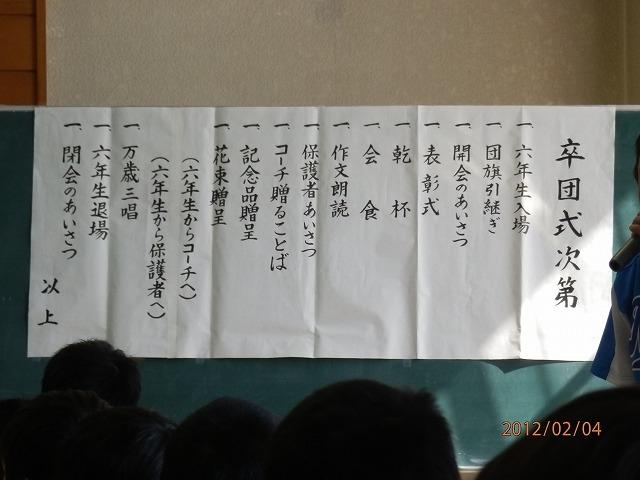 卒団式次第
一、六年生入場
一、団旗引継ぎ
一、開会のあいさつ
一、表彰式
一、乾杯
一、会食
一、作文朗読
一、保護者あいさつ
一、コーチ贈ることば
一、記念品贈呈
一、花束贈呈
(六年生からコーチへ)
(六年生から保護者へ)
一、万歳三唱
一、六年生退場
一、閉会のあいさつ
以上
2012/02/04